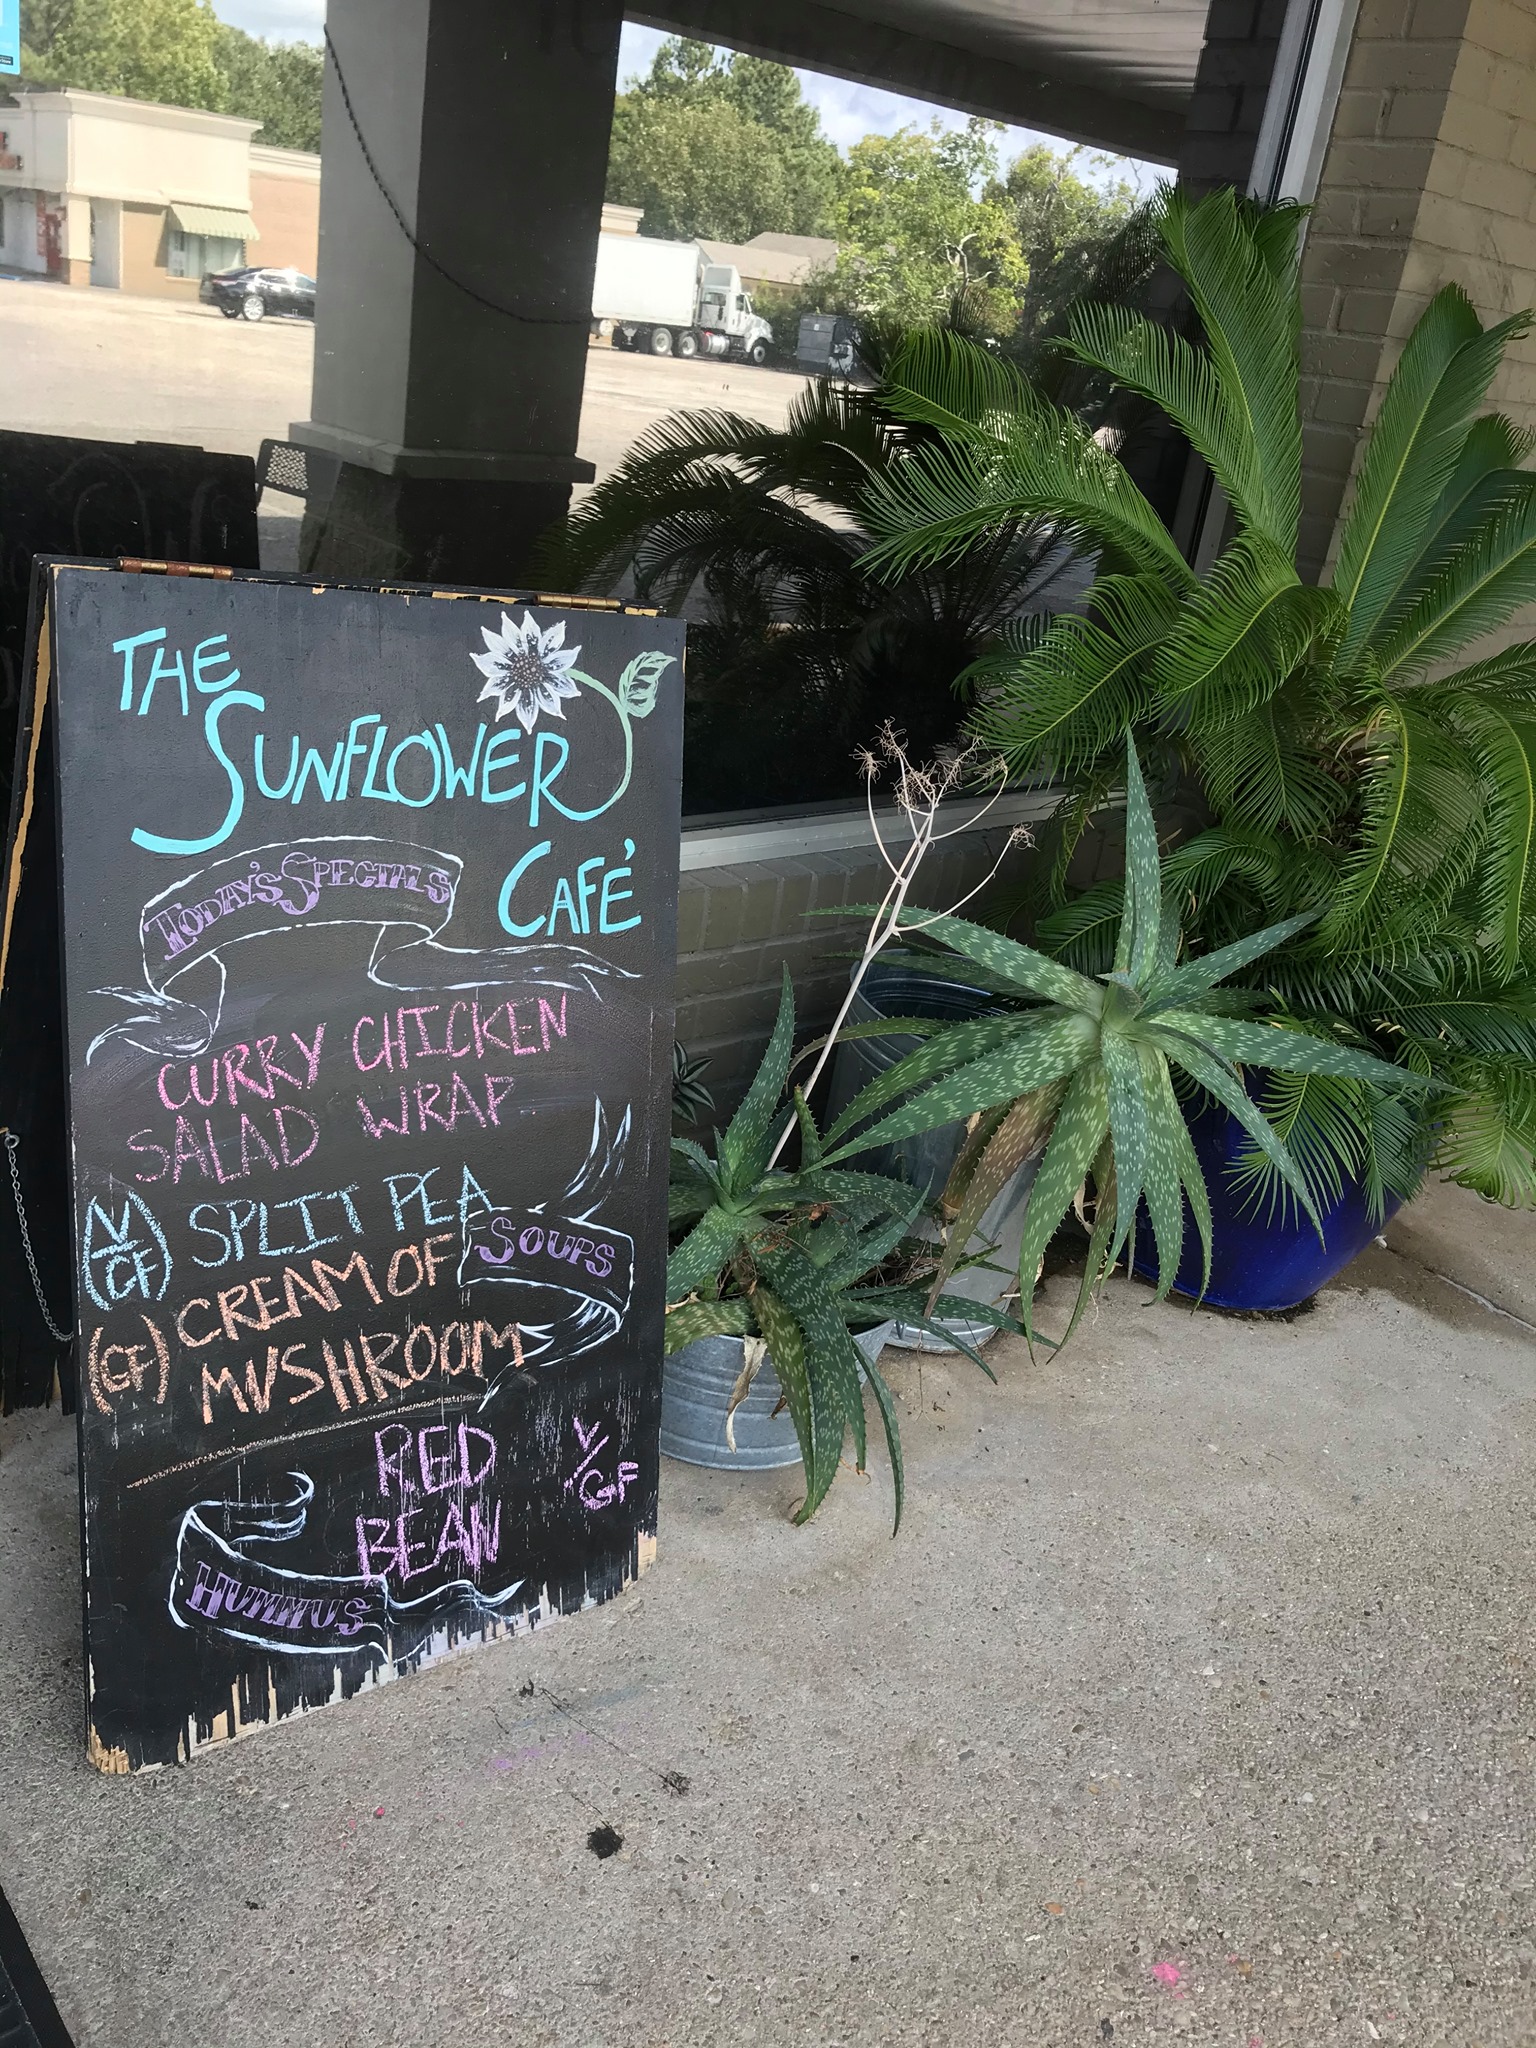 THE
SUNFLOWER
CAFÉ
TODAY'S SPECIALS
CURRY CHICKEN
SALAD WRAP
(V/GF) SPLIT PEA
SOUPS
(GF) CREAM OF
MUSHROOM
RED
BEAN
V/GF
HUMMUS